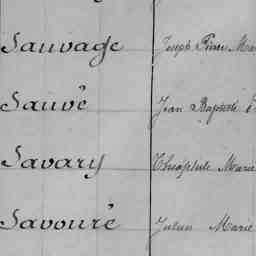 Sauvage Joseph Pierre Mar
Sauvé Jean Baptiste
Savary Théophile Marie
Savouré Julien Marie